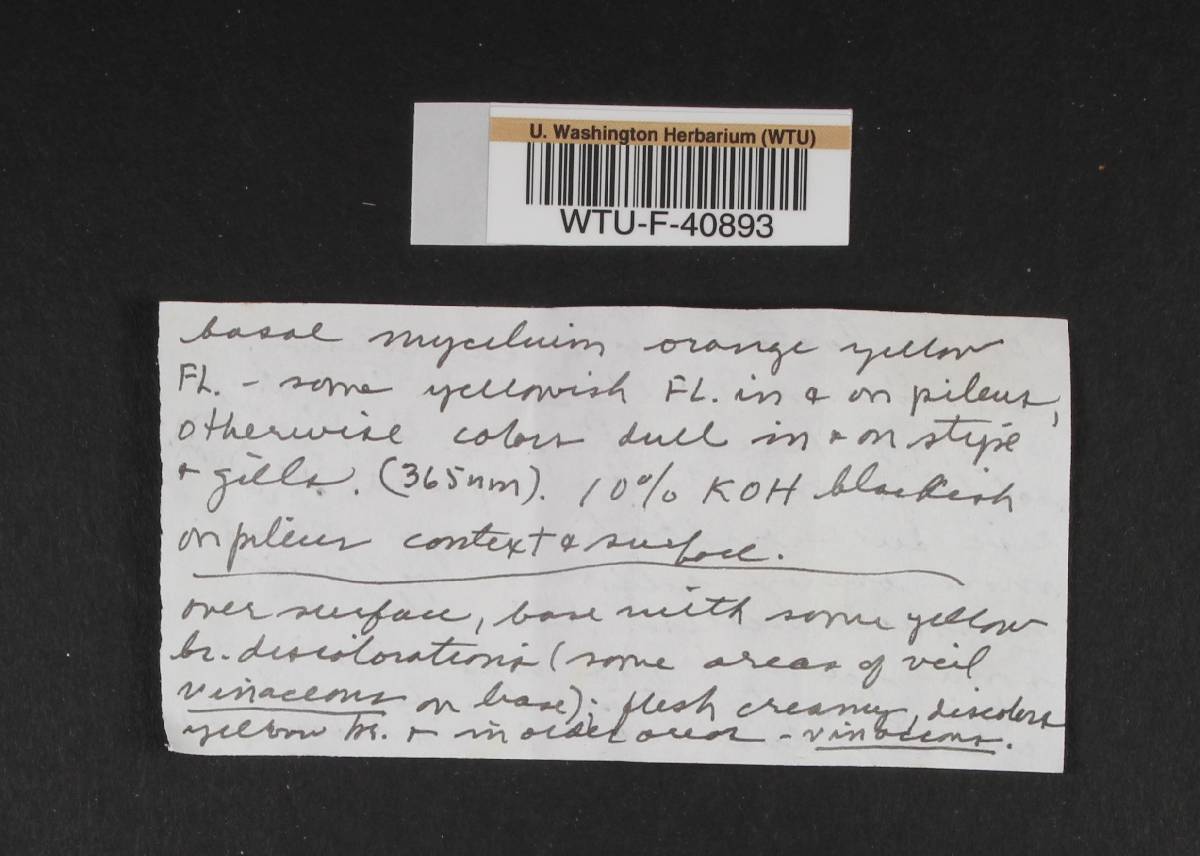 U. Washington Herbarium (WTU)
WTU-F-40893
basal mycelium orange yellow
FL. - some yellowish FL. in & on pileus,
otherwise colors dull in & on stipe
& gills. (365nm). 10% KOH blackish
on pileus context & surface.
over surface, base with some yellow
br. discolorations (some areas of veil
vinaceous on base); flesh creamy, discolors
yellow br. & in older areas - vinaceous.